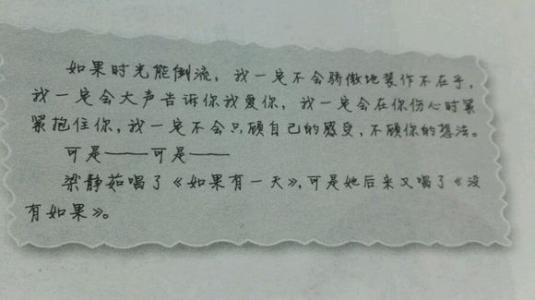 如果时光能倒流，我一定不会骄傲地装作不在乎，
我一定会大声告诉你我爱你，我一定会在你伤心时紧
紧抱住你，我一定不会只顾自己的感受，不顾你的想法。
可是——可是——
梁静茹唱了《如果有一天》，可是她后来又唱了《没
有如果》。